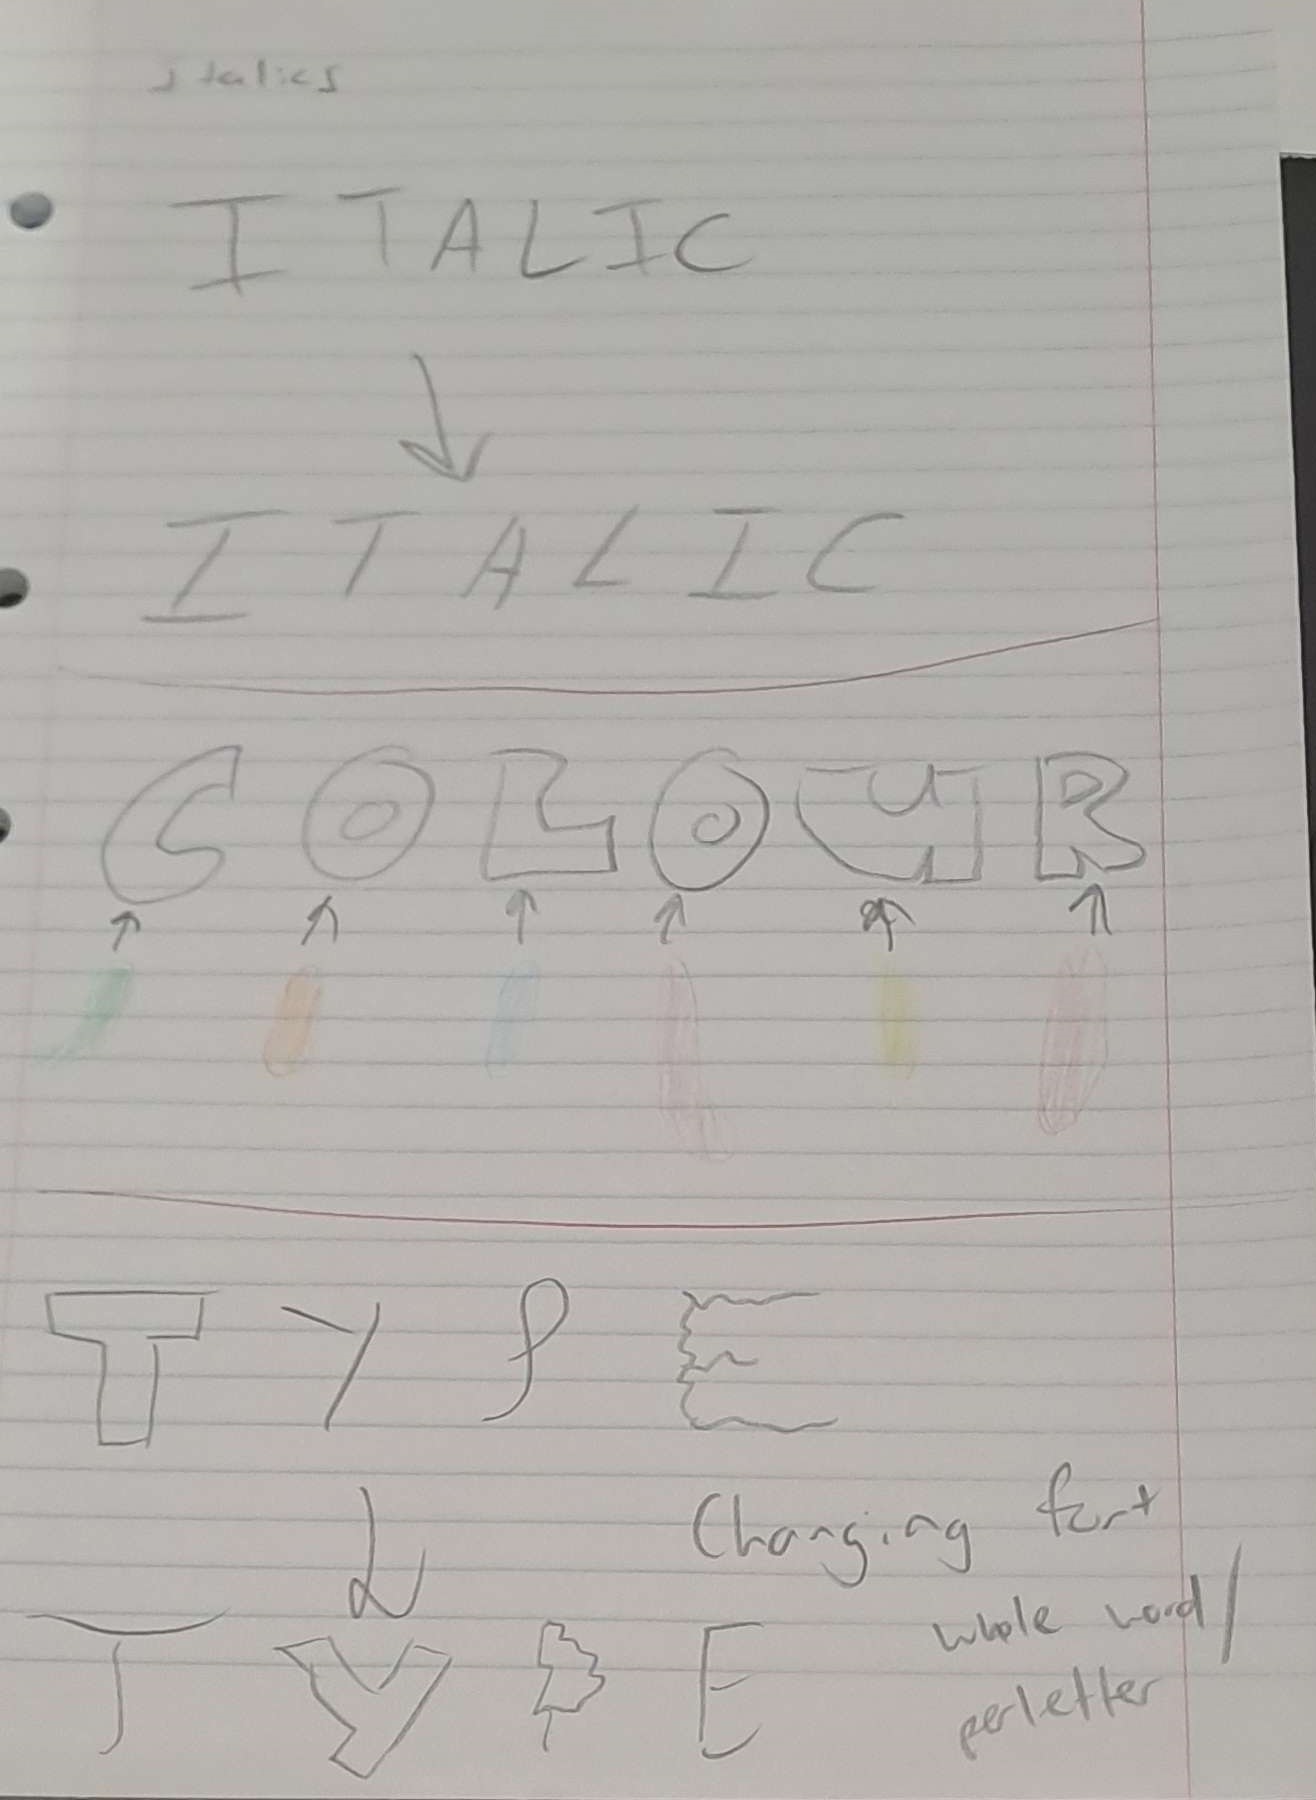 italics
ITALIC
ITALIC
COLOUR
TYPE
Changing font
whole word/
per letter
TYPE